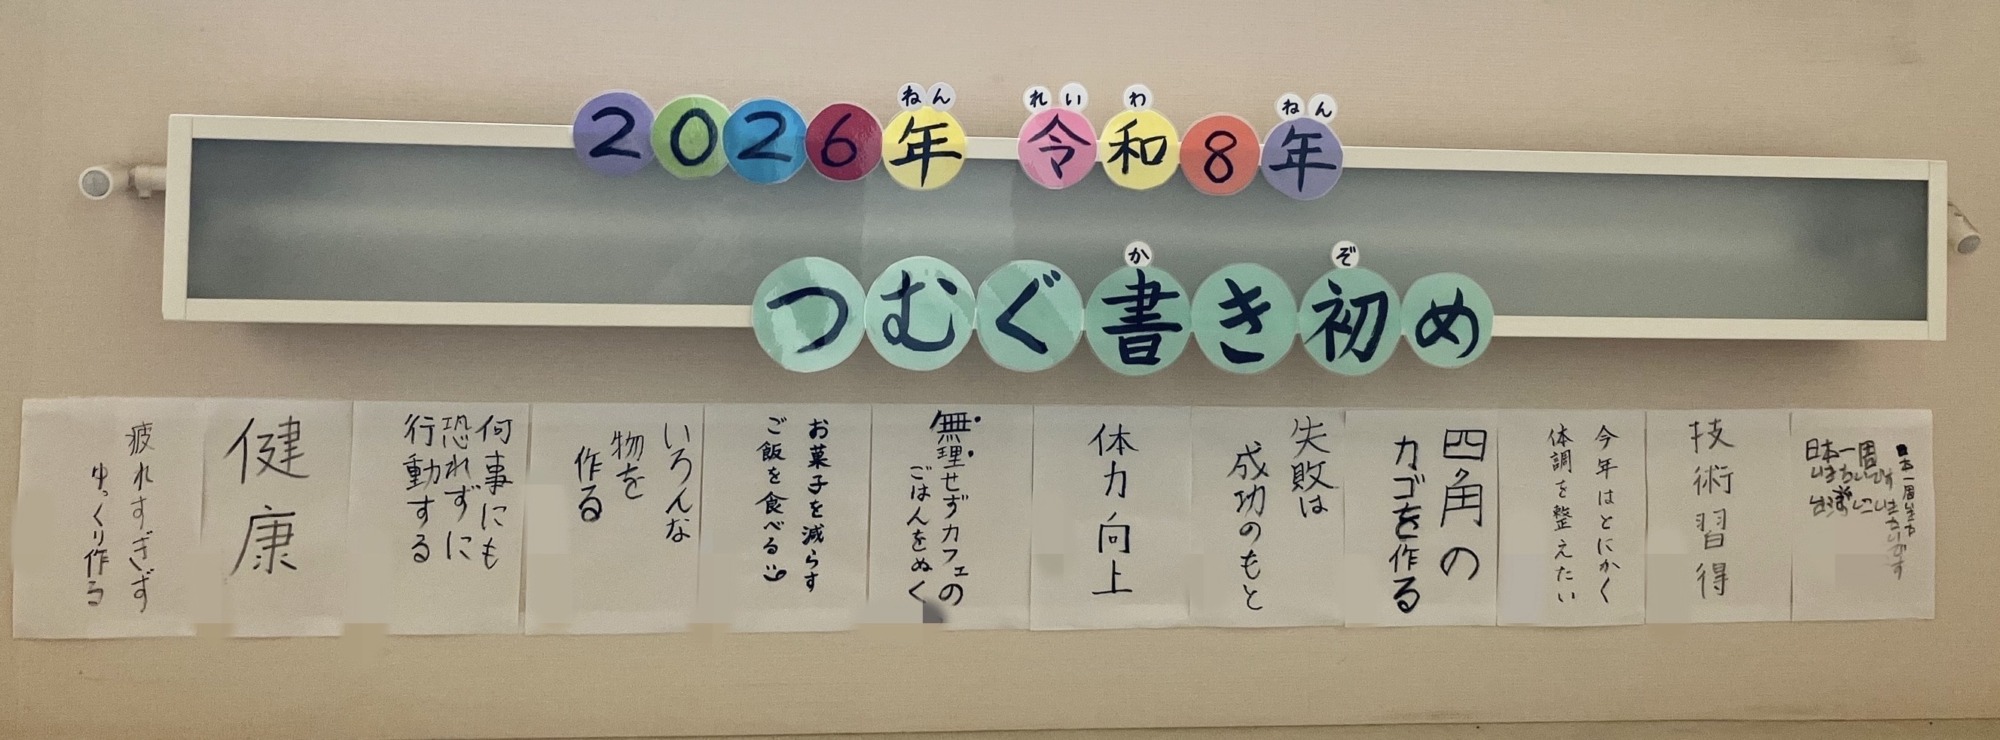 2026年 令和8年
ねん れいわ ねん
つむぐ書き初め
か ぞ
日本一周
技術習得
今年はとにかく
体調を整えたい
四角の
カゴを作る
失敗は
成功のもと
体力向上
無理せずカフェの
ごはんをぬく
お菓子を減らす
ご飯を食べる
いろんな
物を
作る
何事にも
恐れずに
行動する
健康
疲れすぎず
ゆっくり作る